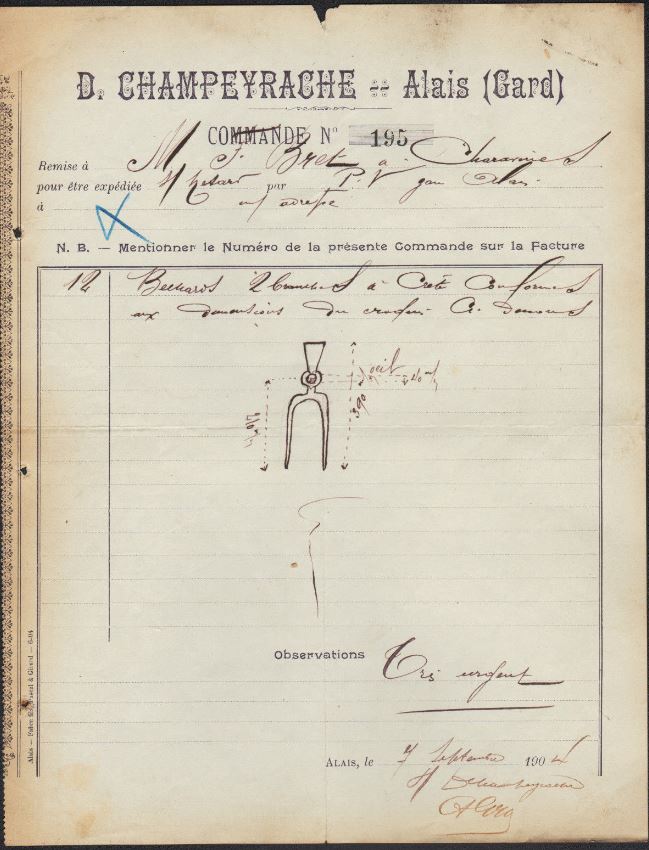 D. CHAMPEYRACHE -:- Alais (Gard)
COMMANDE N° 195
Remise à M F. Bret a Charavines
pour être expédiée par P. V gare Alais
à m/ adresse
N. B. — Mentionner le Numéro de la présente Commande sur la Facture
12 Bechards 2 branches à Crête Conformes
aux dimensions du croquis Ci dessous
oeil
40 m/m
390
Observations Très urgent
Alais, le 7 Septembre 1904
D Champeyrache
Alais — Fabre